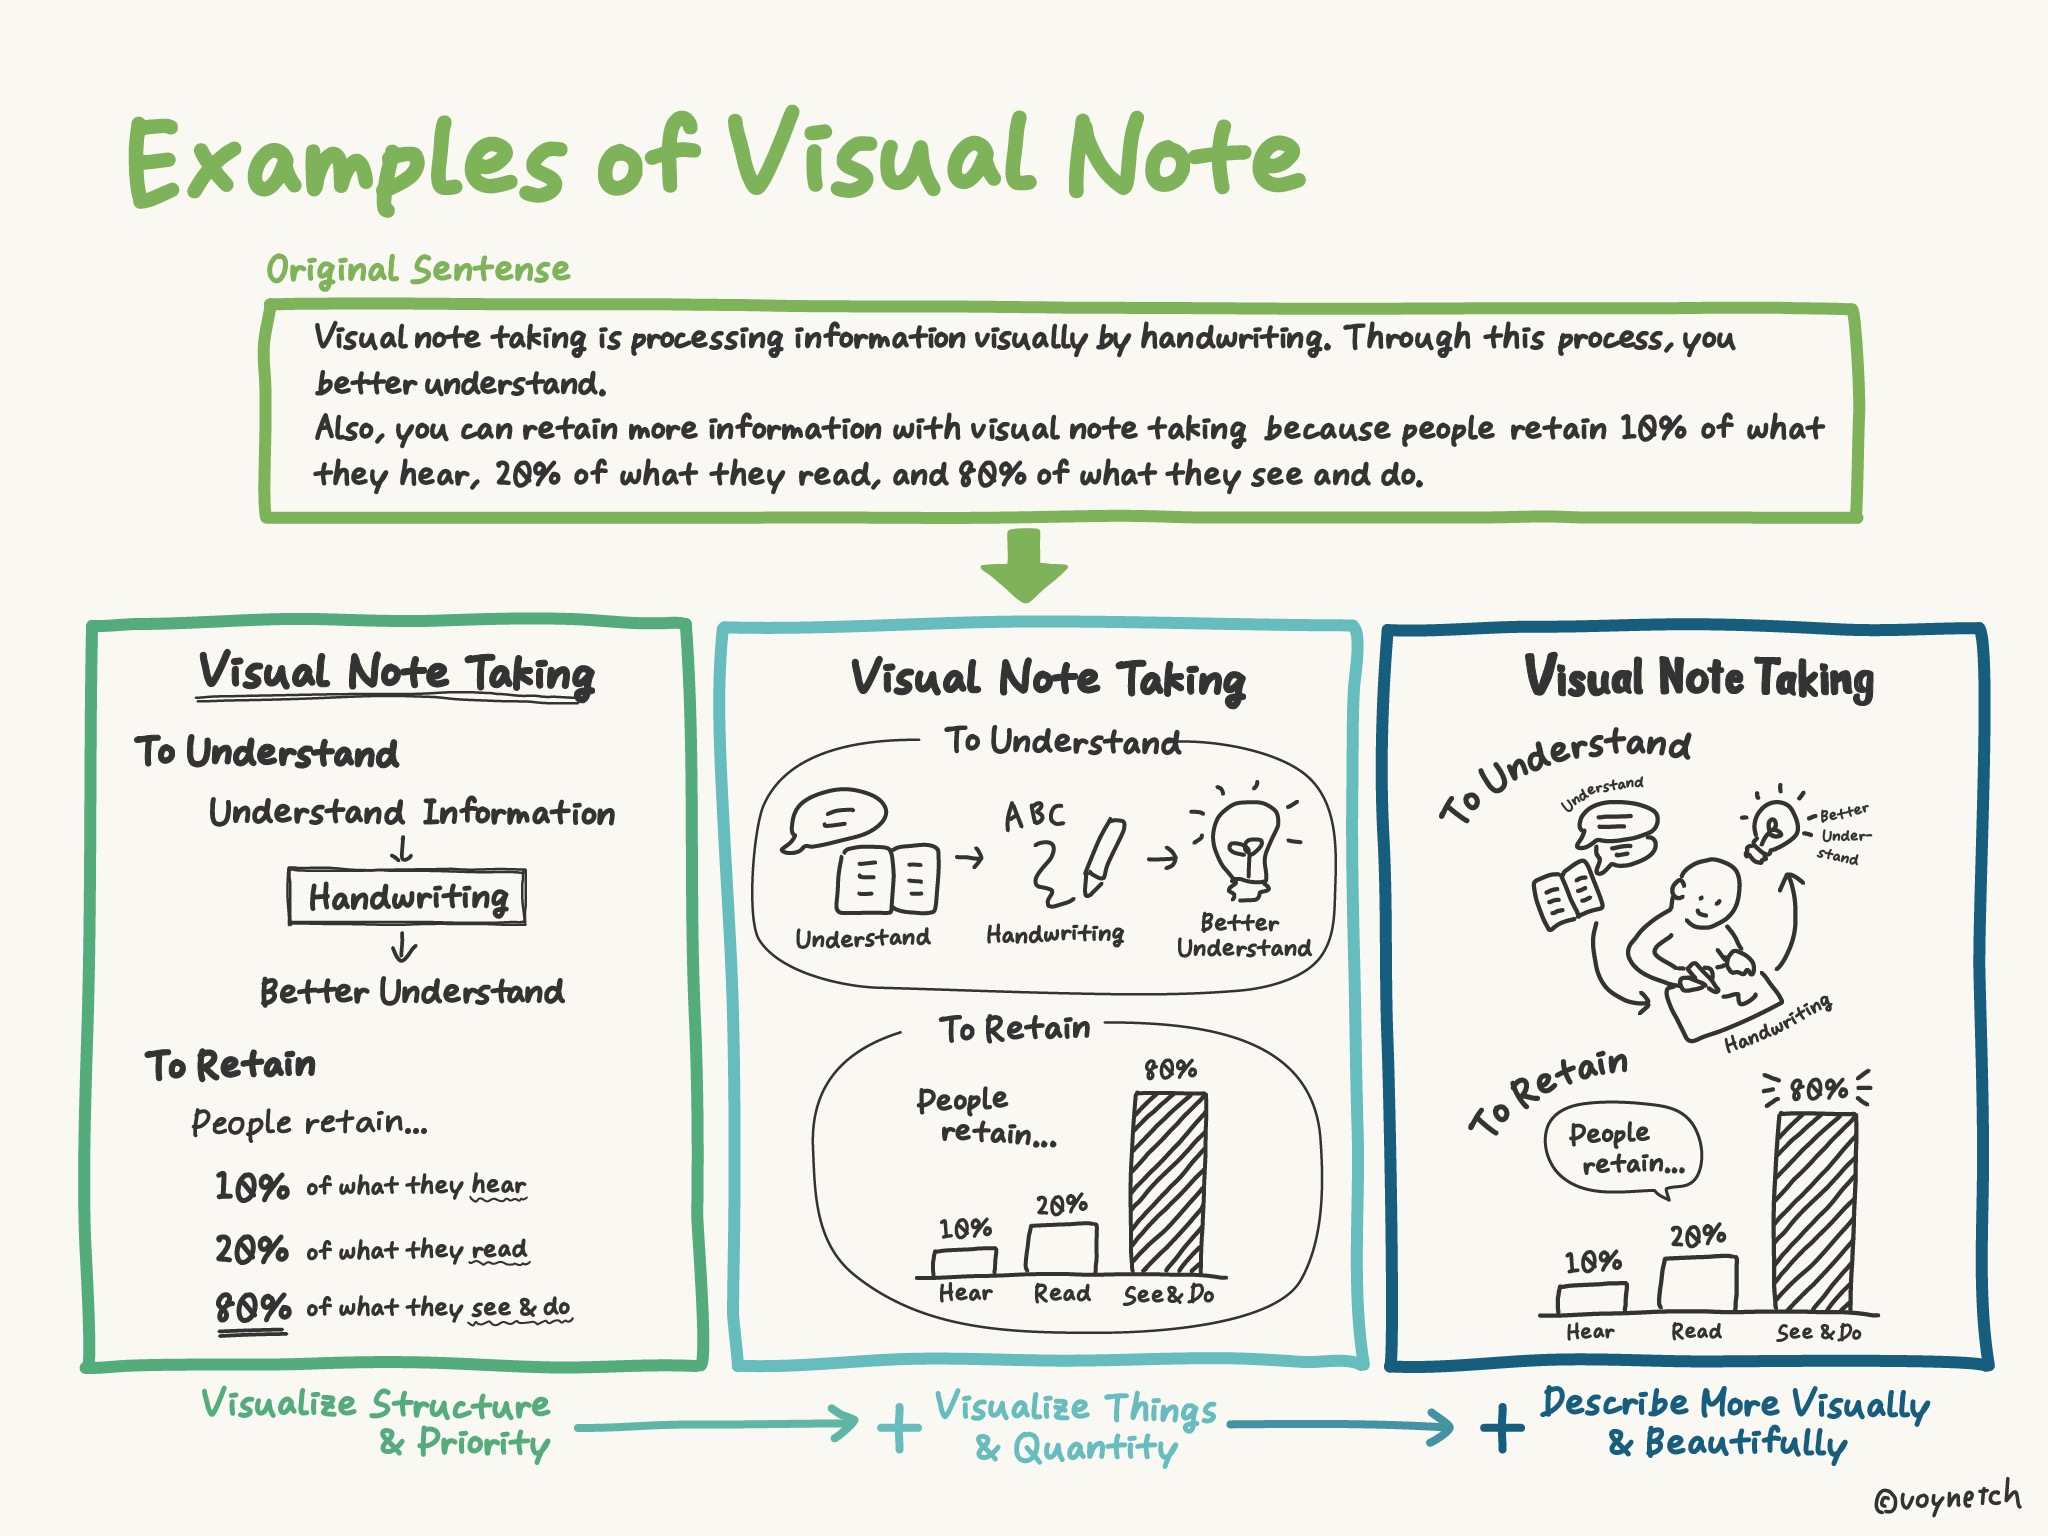 Examples of Visual Note
Original Sentense
Visual note taking is processing information visually by handwriting. Through this process, you
better understand.
Also, you can retain more information with visual note taking because people retain 10% of what
they hear, 20% of what they read, and 80% of what they see and do.
Visual Note Taking
To Understand
Understand Information
Handwriting
Better Understand
To Retain
People retain...
10% of what they hear
20% of what they read
80% of what they see & do
Visualize Structure
& Priority
Visual Note Taking
To Understand
ABC
Understand
Handwriting
Better
Understand
To Retain
People
retain...
10%
20%
80%
Hear
Read
See & Do
+ Visualize Things
& Quantity
Visual Note Taking
To Understand
Understand
Better
Under-
stand
Handwriting
To Retain
People
retain...
10%
20%
80%
Hear
Read
See & Do
+ Describe More Visually
& Beautifully
©voynetch